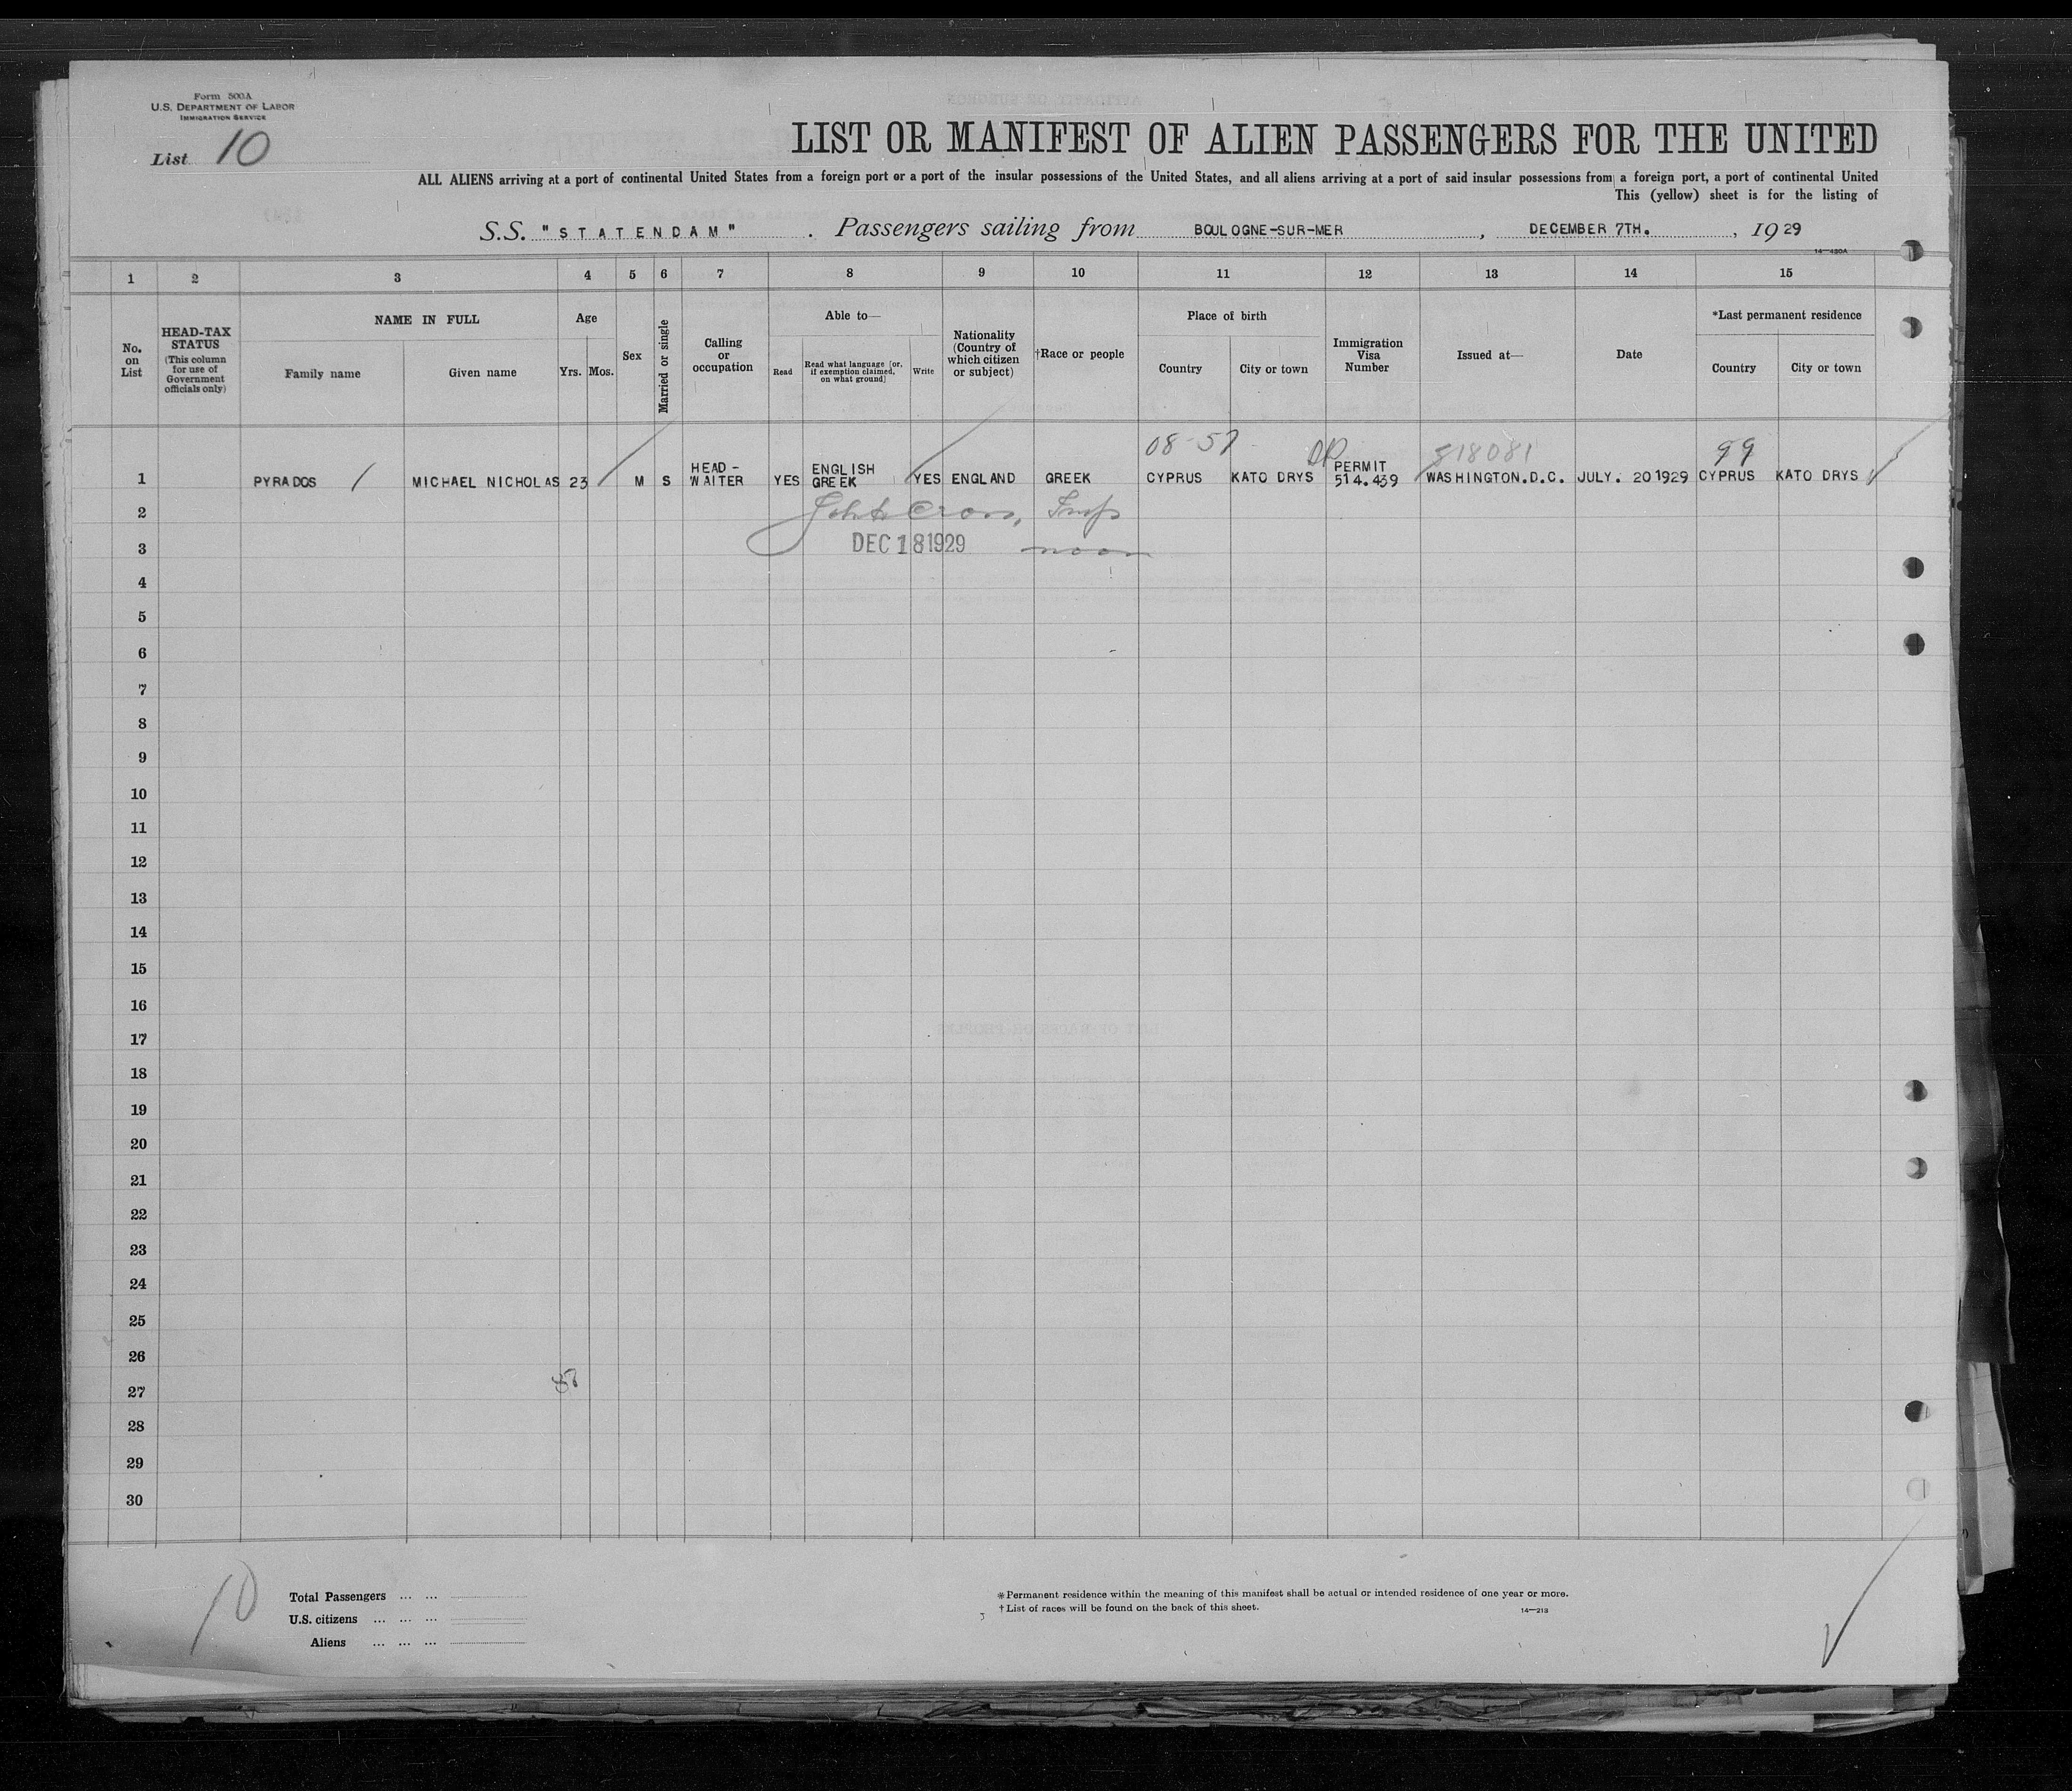 Form 500A
U.S. DEPARTMENT OF LABOR
IMMIGRATION SERVICE
List 10
LIST OR MANIFEST OF ALIEN PASSENGERS FOR THE UNITED
ALL ALIENS arriving at a port of continental United States from a foreign port or a port of the insular possessions of the United States, and all aliens arriving at a port of said insular possessions from a foreign port, a port of continental United
This (yellow) sheet is for the listing of
S.S. "STATENDAM" . Passengers sailing from BOULOGNE-SUR-MER , DECEMBER 7TH. , 1929
14—430A
1 2 3 4 5 6 7 8 9 10 11 12 13 14 15
No. on List
HEAD-TAX STATUS (This column for use of Government officials only)
NAME IN FULL
Family name
Given name
Age
Yrs. Mos.
Sex
Married or single
Calling or occupation
Able to—
Read
Read what language [or, if exemption claimed, on what ground]
Write
Nationality (Country of which citizen or subject)
†Race or people
Place of birth
Country
City or town
Immigration Visa Number
Issued at—
Date
*Last permanent residence
Country
City or town
08-57 818081 99
1 PYRADOS MICHAEL NICHOLAS 23 M S HEAD-WAITER YES ENGLISH GREEK YES ENGLAND GREEK CYPRUS KATO DRYS PERMIT 514.439 WASHINGTON.D.C. JULY. 20 1929 CYPRUS KATO DRYS
2 Cross, Insp
3 DEC 18 1929 noon
4
5
6
7
8
9
10
11
12
13
14
15
16
17
18
19
20
21
22
23
24
25
26
27
28
29
30
10
Total Passengers ... ...
U.S. citizens ... ... ...
Aliens ... ... ...
*Permanent residence within the meaning of this manifest shall be actual or intended residence of one year or more.
†List of races will be found on the back of this sheet.
14—213